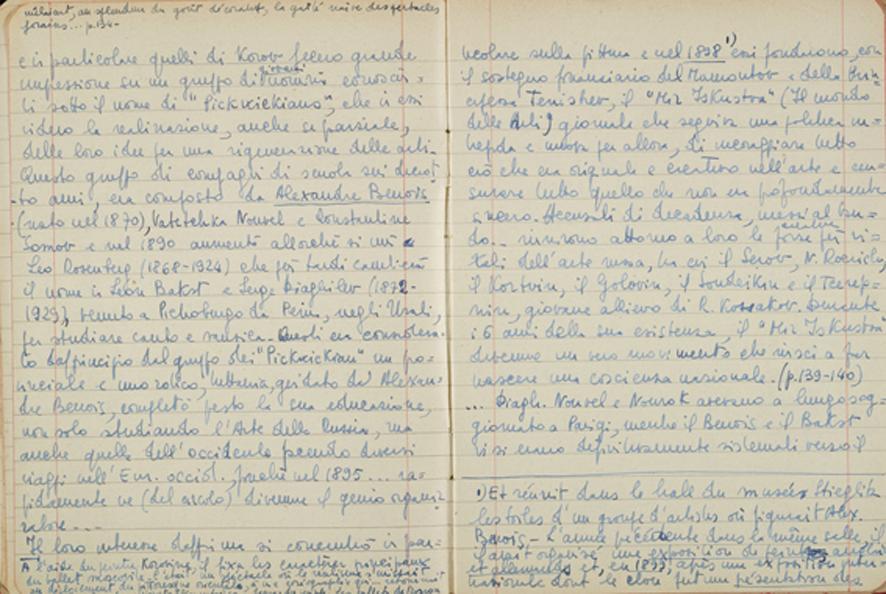 miluant, au splendeur du goût décoratif, la gaîté naïve des spectacles
forains... p.134-
e in particolare quelli di Korov fecero grande
impressione su un gruppo di giovani uomini conosciu=
ti sotto il nome di "Pickwickiano", che in essi
videro la realizzazione, anche se parziale,
delle loro idee per una rigenerazione delle arti-
Questo gruppo di compagni di scuola sui
to ami, era composto da Alexandre Benois
(nato nel 1870), Vatetchka Nouvel e Constantine
Somov e nel 1890 aumentò allorché si unì
Leo Rosenberg (1868-1924) che più tardi cambierà
il nome in Léon Bakst e Serge Diaghilev (1872-
1929), venuto a Pietroburgo da Perm, negli Urali,
per studiare canto e musica. Questi era considera=
to dapprincipio dal gruppo dei "Pickwickian" un pro=
vinciale e uno zotico; tuttavia, guidato da Alexan=
dre Benois, completò presto la sua educazione,
non solo studiando l'Arte della Russia, ma
anche quella dell'occidente facendo diversi
viaggi nell'Eur. occid., finché nel 1895 ... ra=
pidamente ne (del circolo) divenne il genio organiz
zatore ...
Il loro interesse dapprima si concentrò in par=
l'aide du peintre Korovine, il fixa les caractères principaux
du ballet
ticolare sulla pittura e nel 1898 1) essi fondarono, con
il sostegno finanziario del Mamontov e della Prin=
cipessa Tenishev, il "Mir Iskustva" (Il mondo
delle Arti) giornale che seguiva una politica in=
trepida e nuova per allora, di incoraggiare tutto
ciò che era originale e creativo nell'arte e cen=
surare tutto quello che non era profondamente
sincero. Accusati di decadenza, messi al ban=
do.. riunirono attorno a loro le forze creative più vi=
tali dell'arte russa, tra cui il Serov, N. Roerich,
il Korovin, il Golovin, il Soudeikin e il Tcerep=
nin, giovane allievo di R. Korsakov. Durante
i 6 anni della sua esistenza, il "Mir Iskustva"
divenne un vero movimento che riuscì a far
nascere una coscienza nazionale. (p.139-140)
... Diagh. Nouvel e Nourok avevano a lungo sog=
giornato a Parigi, mentre il Benois e il Bakst
vi si erano definitivamente sistemati verso il
1) Et réunit dans le hall du musée Stieglitz
les toiles d'un groupe d'artistes où figurait Alex.
Benois - L'année précédente dans la même salle, il
avait organisé une exposition de peintres anglais
et allemands et, en 1899, après une exposition inter=
nationale dont le clou fut un présentation des